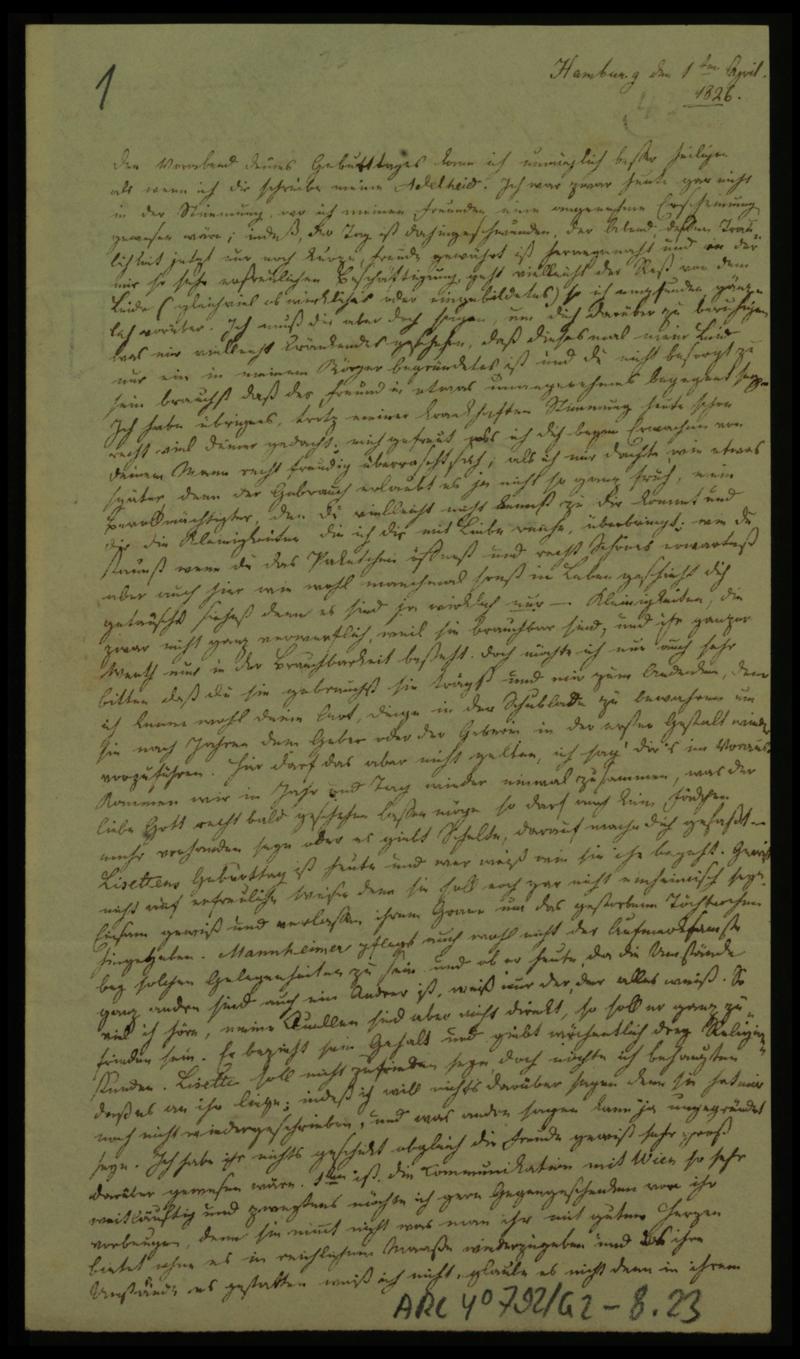 1
Hamburg den 1ten April.
1826.
Den Vorabend deines Geburttages kann ich unmöglich besser heiligen
als wenn ich dir schreibe meine Adelheid. Ich war zwar heute gar nicht
in der Stimmung, wo ich meinen Freunden eine angenehme Erscheinung
gewesen wäre; indeß, der Tag ist dahingeschwunden, der Abend, dessen Trau-
lichkeit jetzt nur noch kurze Freude gewährt ist herangenaht und in der
mir so sehr erfreulichen Beschäftigung geht vielleicht der Rest von dem
Leide (gleichviel ob wirkliches oder eingebildetes) so ich empfunden gänz-
lich vorüber. Ich muß dir aber doch sagen, um dich darüber zu beruhigen
was mir vielleicht Kränkendes geschehen, daß diesesmal mein Leid
nur ein in meinem Körper begründetes ist und du nicht besorgt zu
sein brauchst daß der Freundin etwas unangenehmes begegnet sey.
Ich habe übrigens, trotz meiner krankhaften Stimmung heute schon
recht viel deiner gedacht; mich gefreut als ich dich beym Erwachen von
deinem Mann recht freudig überrascht sah; als ich mir dachte wie etwas
später denn der Gebrauch erlaubt es ja nicht so ganz früh, mein
Bevollmächtigter, den du vielleicht nicht kennst zu dir kommt und
dir die Kleinigkeiten die ich dir mit Liebe weihe, überbringt; wie du
staunst wenn du das Paketchen öffnest und recht Schönes erwartest
aber auch hier wie wohl manchmal sonst im Leben geschieht dich
getäuscht siehest denn es sind ja wirklich nur — Kleinigkeiten, die
zwar nicht ganz verwerflich, weil sie brauchbar sind, und ihr ganzer
Werth nur in der Brauchbarkeit besteht. Doch möchte ich nun auch sehr
bitten daß du sie gebrauchst sie trägst und mir zum Andenken, denn
ich kenne wohl deine Art, Dinge in der Schublade zu bewahren um
sie nach Jahren dem Geber oder der Geberin in der ersten Gestalt wieder
vorzuführen. Hier darf das aber nicht gelten, ich sag' dir's im Voraus.
Kommen wir in Jahr und Tag wieder einmal zusammen, was der
liebe Gott recht bald geschehen lassen möge so darf auch kein Fädchen
mehr vorhanden seyn oder es giebt Schelte, darauf mache dich gefaßt.—
Lisettens Geburttag ist heute und wer weiß wie sie ihn begeht. Gewiß
nicht auf erfreuliche Weise denn sie soll noch gar nicht einheimisch seyn.
Einsam gewiß und verlassen ihrem Grame um das gestorbene Töchterchen
hingegeben. Mannheimer pflegt auch wohl nicht der Aufmerksamste
bey solchen Gelegenheiten zu sein und ob er heute, da die Umstände
ganz andre sind auch ein Andrer ist, weiß nur der, der alles weiß. So
viel ich höre, meine Quellen sind aber nicht direkt, so soll er ganz zu-
frieden sein. Er bezieht sein Gehalt und giebt wöchentlich drey Religions-
stunden. Lisette soll nicht zufrieden seyn doch möchte ich behaupten
daß es an ihr liege; indeß ich will nichts darüber sagen denn sie hat mir
noch nicht wiedergeschrieben, und was andre sagen kann ja ungegründet
seyn. Ich habe ihr nichts geschickt obgleich die Freude gewiß sehr groß
darüber gewesen wäre. 1tens ist die Communikation mit Wien so sehr
weitläuftig und zweytens möchte ich gern Gegengeschenken von ihr
vorbeugen, denn sie nimt nicht was man ihr mit gutem Herzen
bietet ohne es in reichlichem Maaße wiederzugeben und ob ihre
Umstände es gestatten weiß ich nicht, glaube es nicht denn in ihrem
ARC 4° 792/G2 - 8.23